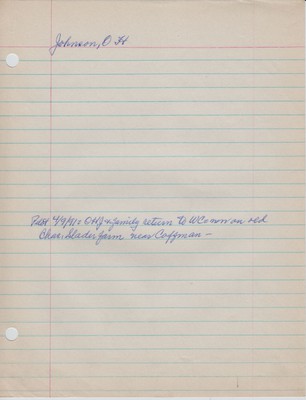 Johnson, O H
4/9/41: OHJ & family return to WC: now on old
Chas. Slader farm near Coffman —